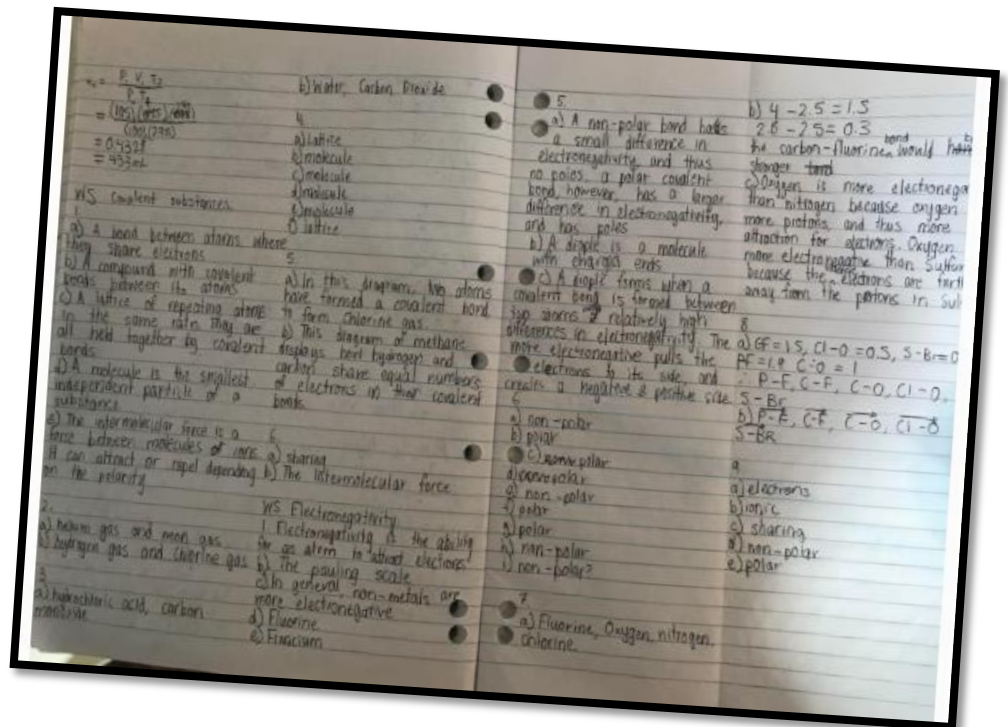 = (105)
= 0.432L
= 432mL
WS Covalent substances
1.
a) A bond between atoms where
they share electrons
b) A compound with covalent
bonds between its atoms
c) A lattice of repeating atoms
in the same ratio. They are
all held together by covalent
bonds
d) A molecule is the smallest
independent particle of a
substance
e) The intermolecular force is a
force between molecules of ions.
It can attract or repel depending
on the polarity
2.
a) helium gas and neon gas
b) hydrogen gas and chlorine gas
3
a) hydrochloric acid, carbon
monoxide
b) Water, Carbon Dioxide
4
a) lattice
b) molecule
c) molecule
d) molecule
e) molecule
f) lattice
5
a) In this diagram, two atoms
have formed a covalent bond
to form Chlorine gas.
b) This diagram of methane
displays how hydrogen and
carbon share equal numbers
of electrons in their covalent
bonds.
6
a) sharing
b) The intermolecular force
WS Electronegativity
1. Electronegativity is the ability
for an atom to attract electrons
b) The pauling scale
c) In general, non-metals are
more electronegative
d) Fluorine
e)
5.
a) A non-polar bond
a small difference in
electronegativity, and thus
no poles, a polar covalent
bond, however, has a larger
difference in electronegativity,
and has poles
b) A dipole is a molecule
with charged ends
c) A dipole forms when a
covalent bond is formed between
two atoms relatively high
differences in electronegativity. The
more electronegative pulls the
electrons to its side, and
creates a negative & positive side
6
a) non-polar
b) polar
c) polar
d) polar
e) non-polar
f) polar
g) polar
h) non-polar
i) non-polar?
7.
a) Fluorine, Oxygen, nitrogen,
chlorine
b) 4 - 2.5 = 1.5
2.8 - 2.5 = 0.3
the carbon-fluorine bond would
stronger
c) Oxygen is more electronega
than nitrogen because oxygen
more protons, and thus more
attraction for electrons. Oxygen
more electronegative than Sulfur
because the electrons are furth
away from the protons in Sul
8
a) CF = 1.5, Cl-O = 0.5, S-Br = 0
PF = 1.9 C-O = 1
∴ P-F, C-F, C-O, Cl-O,
S-Br
b) P-F, C-F, C-O, Cl-O
S-Br
9
a) electrons
b) ionic
c) sharing
d) non-polar
e) polar